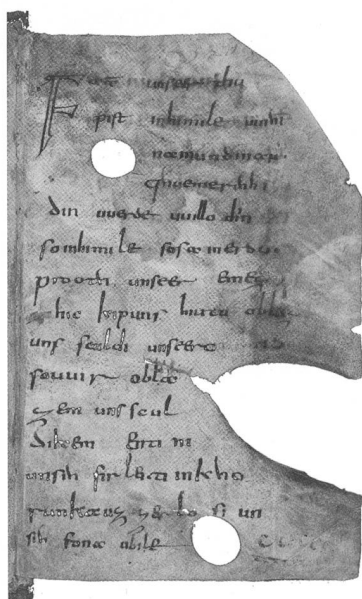 Fater unseer thu
pist in himile uuihi
namun dinan
qhueme rihhi
din uuerde uuillo diin
so in himile sosa in erdu
prooth unseer emez
zihic kip uns hiutu oblaz
uns sculdi unseero
so uuir oblaz
zem uns scul
dikem enti ni
unsih firleiti in kho
runka uzzer losi un
sih fona ubile